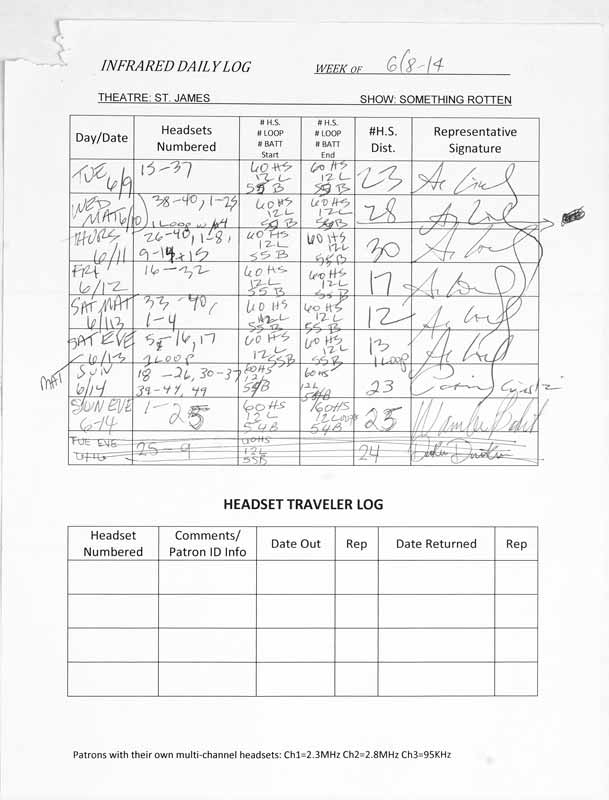 INFRARED DAILY LOG WEEK OF 6/8-14
THEATRE: ST. JAMES SHOW: SOMETHING ROTTEN
Day/Date Headsets Numbered # H.S. # LOOP # BATT Start # H.S. # LOOP # BATT End #H.S. Dist. Representative Signature
TUE 6/9 15-37 60 HS 12 L 55 B 60 HS 12 L 55 B 23
WED MAT 6/10 38-40, 1-25 1 Loop w/ 60 HS 12 L 55 B 60 HS 12 L 55 B 28
THURS 6/11 26-40, 1-8, 9-14 +15 60 HS 12 L 55 B 60 HS 12 L 55 B 30
FRI 6/12 16-32 60 HS 12 L 55 B 60 HS 12 L 55 B 17
SAT MAT 6/13 33-40, 1-4 60 HS 12 L 55 B 60 HS 12 L 55 B 12
SAT EVE 6/13 5-16, 17 1 LOOP 60 HS 12 L 55 B 60 HS 12 L 55 B 13 1 LOOP
MAT SUN 6/14 18-26, 30-37 39-44, 49 60 HS 12 L 54 B 60 HS 12 L 54 B 23
SUN EVE 6-14 1-25 60 HS 12 L 54 B 60 HS 12 Loops 54 B 25
TUE EVE 6/16 25-9 60 HS 12 L 55 B 24
HEADSET TRAVELER LOG
Headset Numbered Comments/ Patron ID Info Date Out Rep Date Returned Rep
Patrons with their own multi-channel headsets: Ch1=2.3MHz Ch2=2.8MHz Ch3=95KHz